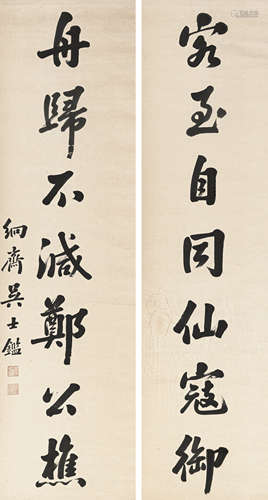 客至自同仙寇御
舟歸不減鄭公樵
絅齋吳士鑑